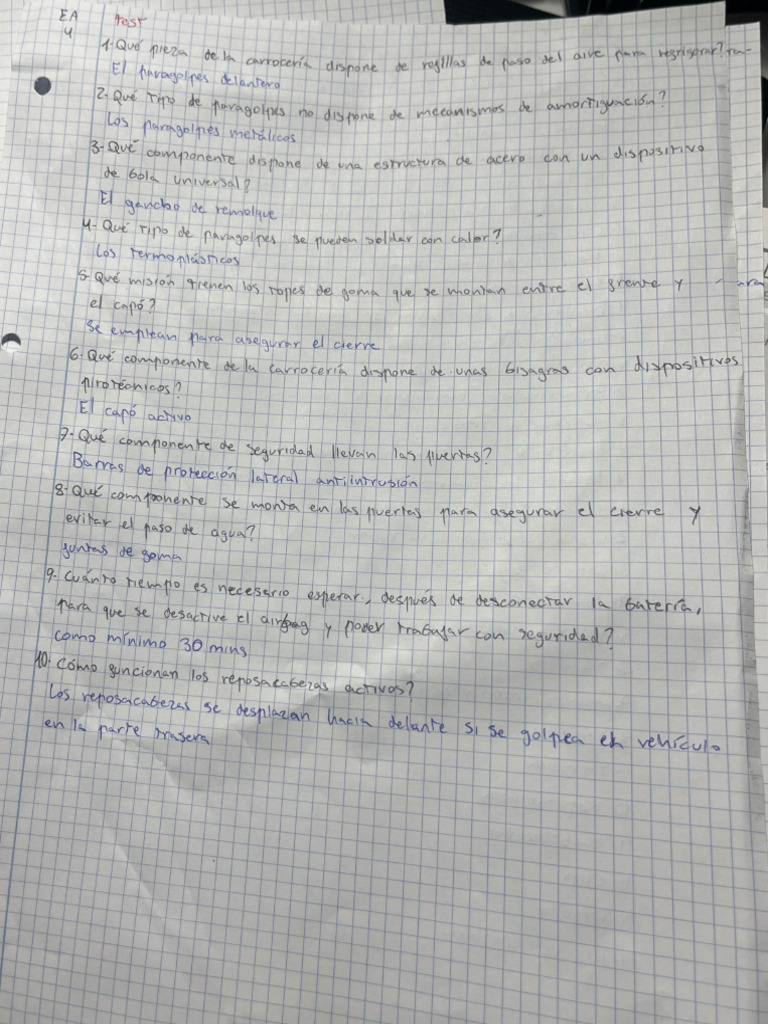 EA test
4
1-Qué pieza de la carrocería dispone de rejillas de paso del aire para refrigerar?
El paragolpes delantero
2-Qué tipo de paragolpes no dispone de mecanismos de amortiguación?
Los paragolpes metálicos
3-Qué componente dispone de una estructura de acero con un dispositivo
de bola universal?
El gancho de remolque
4-Qué tipo de paragolpes se pueden soldar con calor?
Los termoplásticos
5-Qué misión tienen los topes de goma que se montan entre el frente y
el capó?
Se emplean para asegurar el cierre
6-Qué componente de la carrocería dispone de unas bisagras con dispositivos
pirotécnicos?
El capó activo
7-Qué componente de seguridad llevan las puertas?
Barras de protección lateral antiintrusión
8-Qué componente se monta en las puertas para asegurar el cierre y
evitar el paso de agua?
juntas de goma
9-Cuánto tiempo es necesario esperar, después de desconectar la batería,
para que se desactive el airbag y poder trabajar con seguridad?
como mínimo 30 mins
10-Cómo funcionan los reposacabezas activos?
Los reposacabezas se desplazan hacia delante si se golpea el vehículo
en la parte trasera